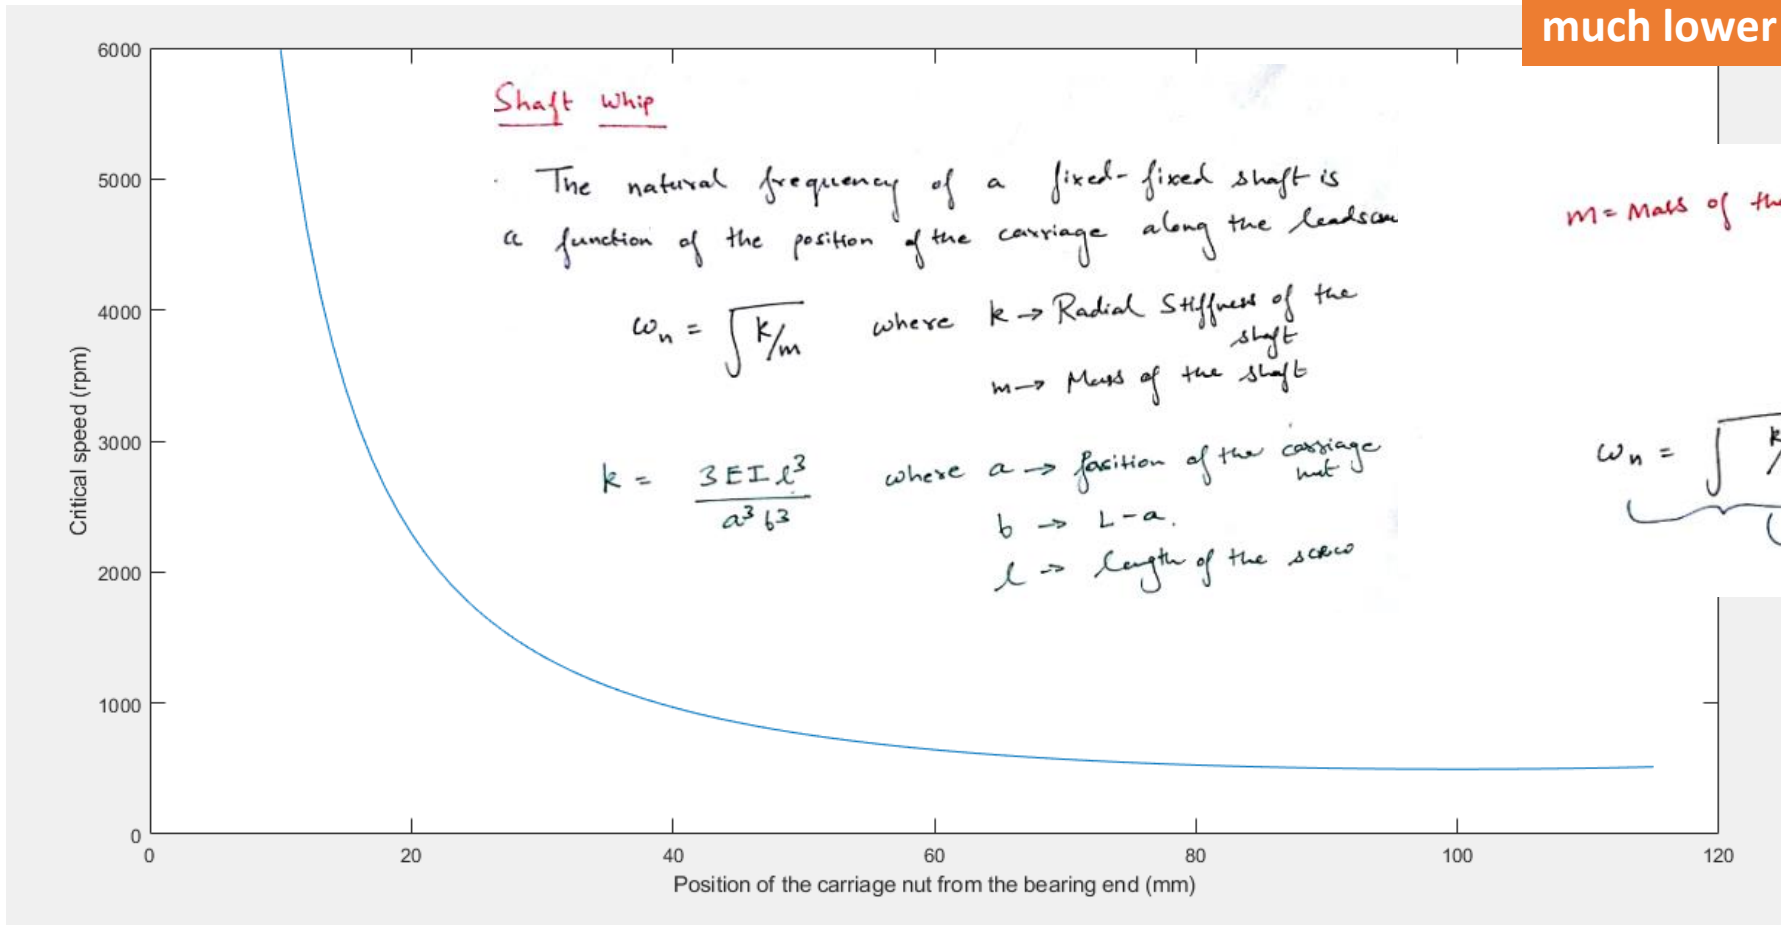 much lower
6000
5000
4000
3000
2000
1000
0
Critical speed (rpm)
Shaft Whip
· The natural frequency of a fixed-fixed shaft is
a function of the position of the carriage along the leadscrew
ωn = √k/m where k → Radial Stiffness of the
shaft
m → Mass of the shaft
k = 3EIl³ / a³b³ where a → position of the carriage
nut
b → L-a.
l → length of the screw
m = Mass of the
ωn = √k/
0 20 40 60 80 100 120
Position of the carriage nut from the bearing end (mm)